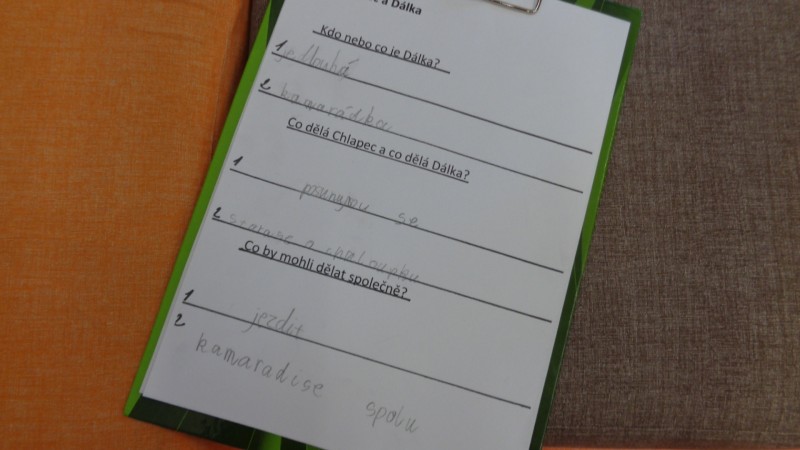 c a Dálka
Kdo nebo co je Dálka?
1 je dlouhá
2 kamarádka
Co dělá Chlapec a co dělá Dálka?
1 posunujou se
2 a chaloupku
Co by mohli dělat společně?
1 jezdit
2 kamaradise spolu